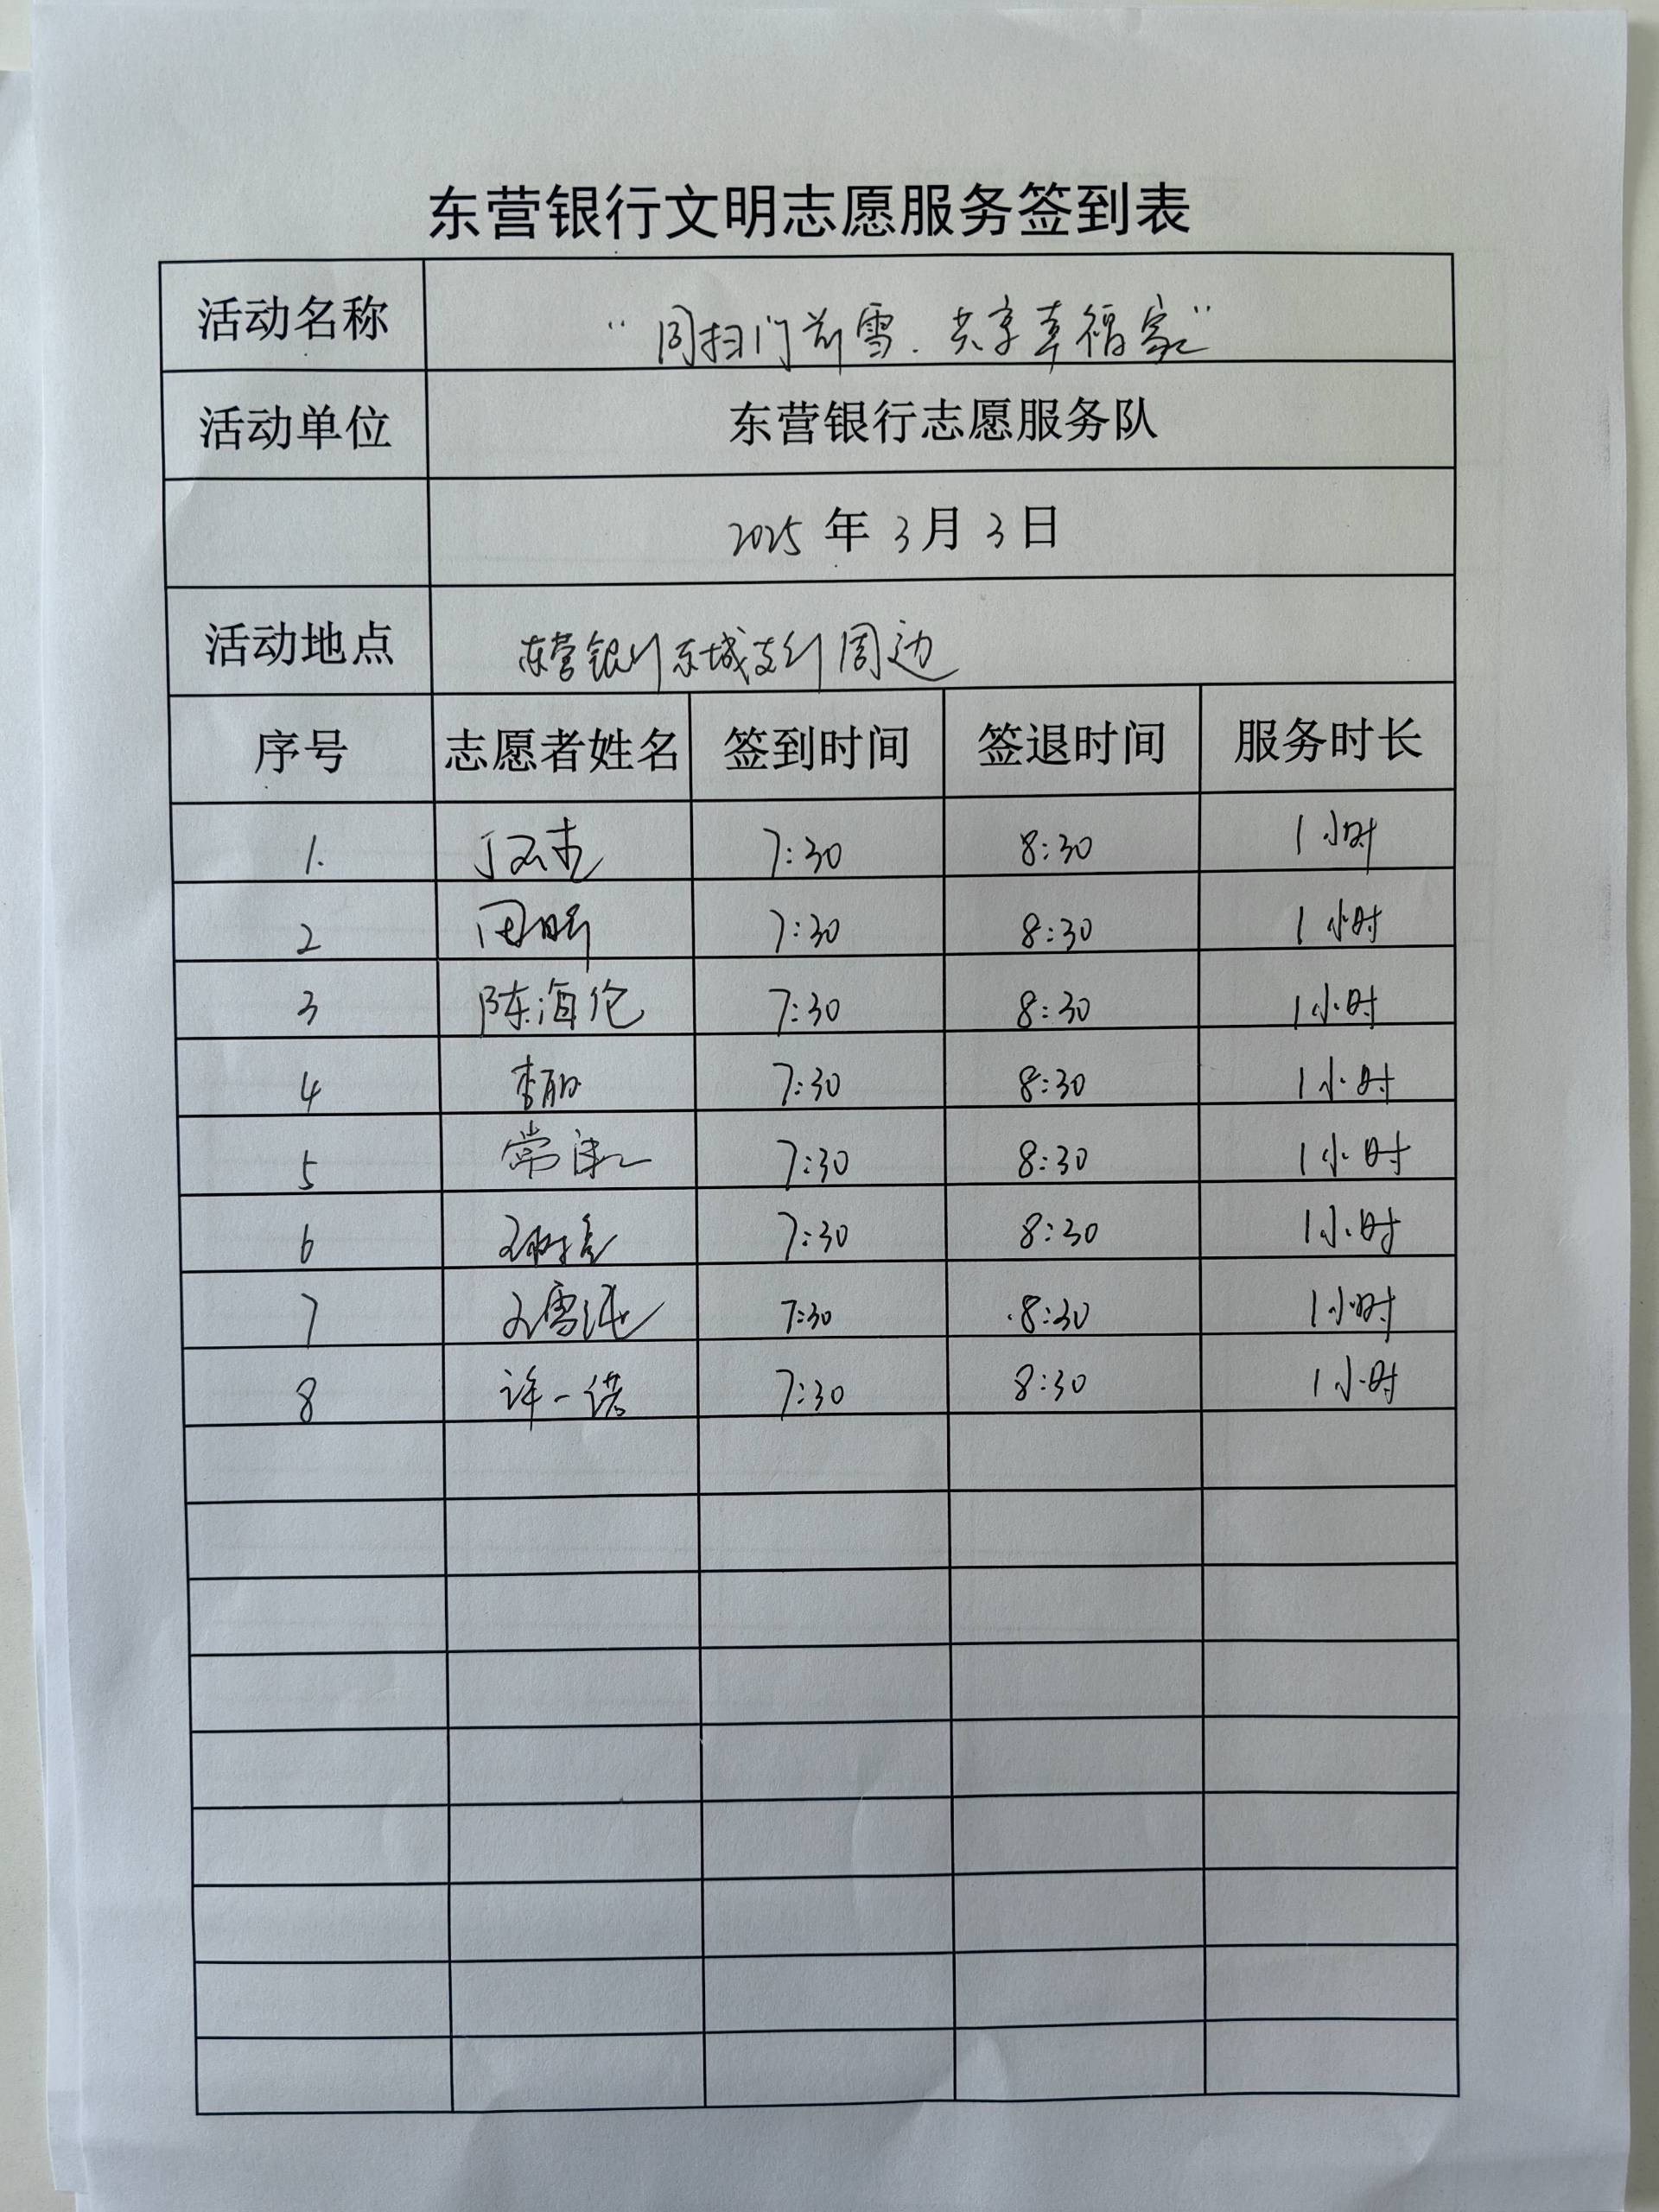 东营银行文明志愿服务签到表
活动名称 “同扫门前雪.共享幸福家”
活动单位 东营银行志愿服务队
2025 年 3 月 3 日
活动地点 东营银行东城支行周边
序号 志愿者姓名 签到时间 签退时间 服务时长
1. 7:30 8:30 1小时
2 7:30 8:30 1小时
3 陈海伦 7:30 8:30 1小时
4 李丽 7:30 8:30 1小时
5 常 7:30 8:30 1小时
6 7:30 8:30 1小时
7 7:30 8:30 1小时
8 许一诺 7:30 8:30 1小时